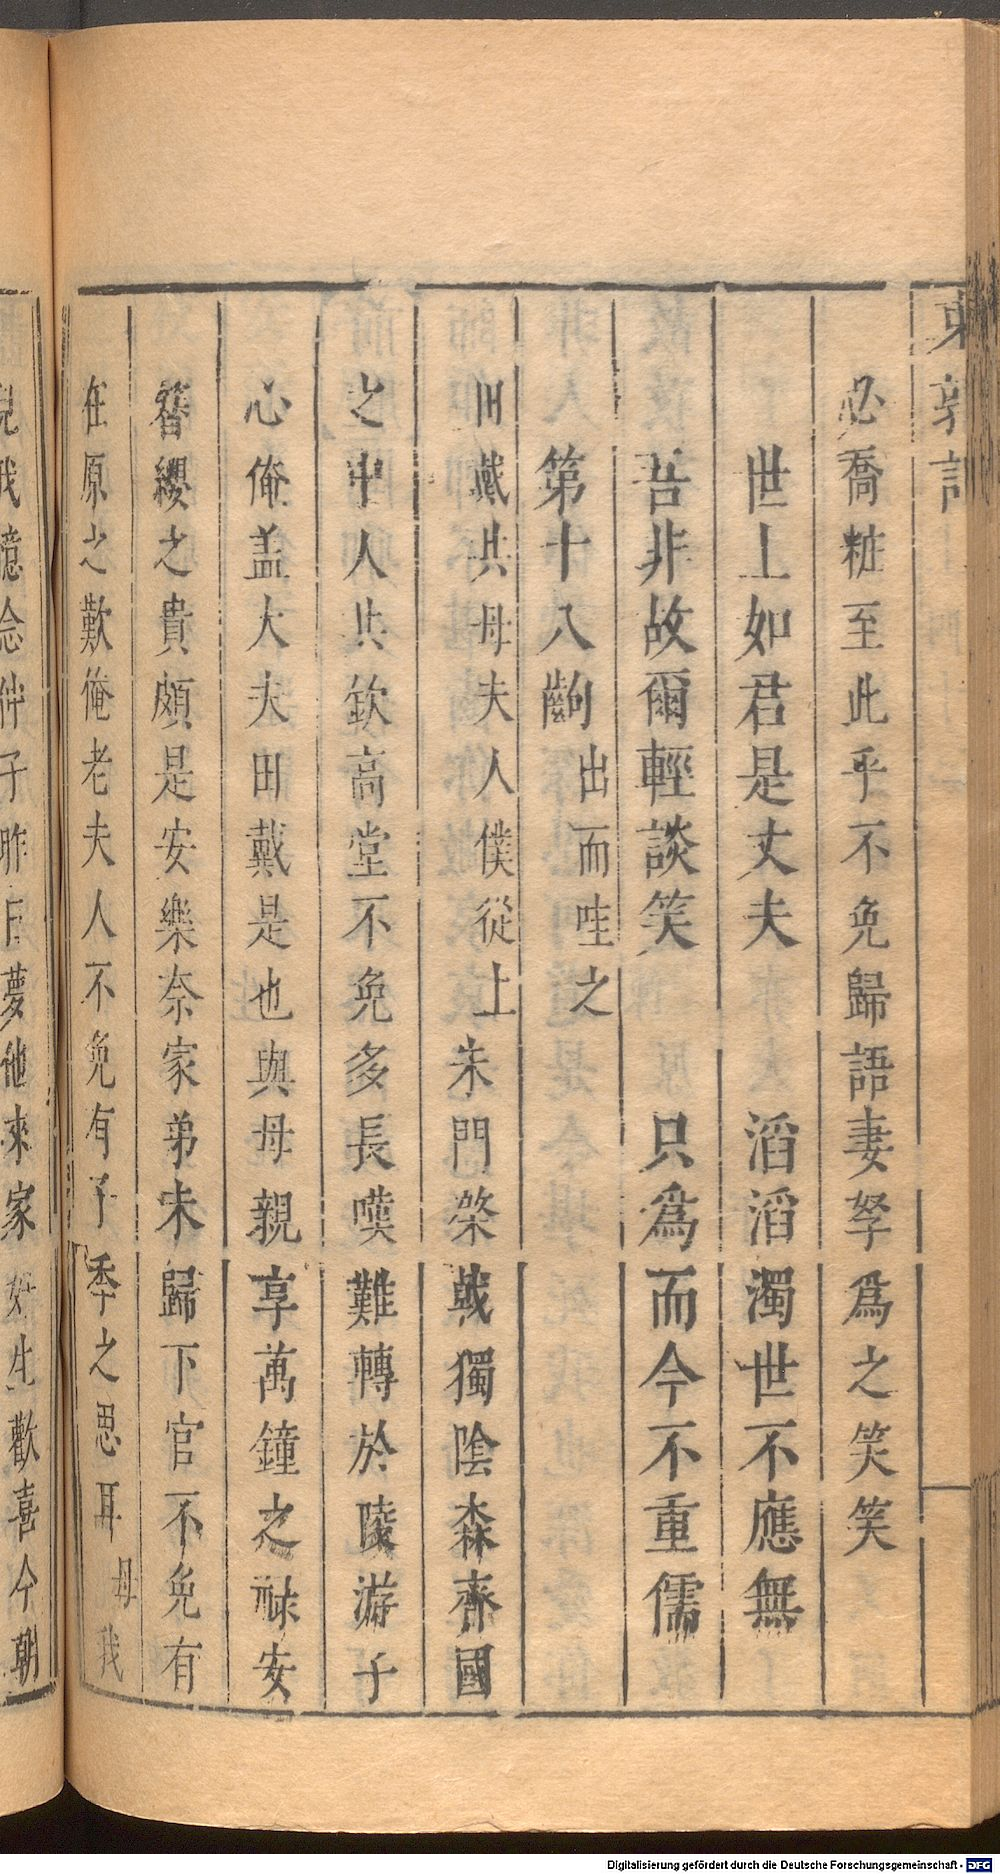 東郭記
必喬粧至此乎不免歸語妻孥爲之笑笑
世上如君是丈夫 滔滔濁世不應無
吾非故爾輕談笑 只爲而今不重儒
第十八齣 出而哇之
田戴共母夫人僕從上 朱門棨戟獨陰森齊國
之中人共欽高堂不免多長嘆難轉於陵游子
心俺盖大夫田戴是也與母親享萬鍾之祿安
簪纓之貴頗是安樂奈家弟未歸下官不免有
在原之歎俺老夫人不免有予季之思耳 母 我
兒我憶念仲子昨日夢他來家好生歡喜今朝
Digitalisierung gefördert durch die Deutsche Forschungsgemeinschaft - DFG